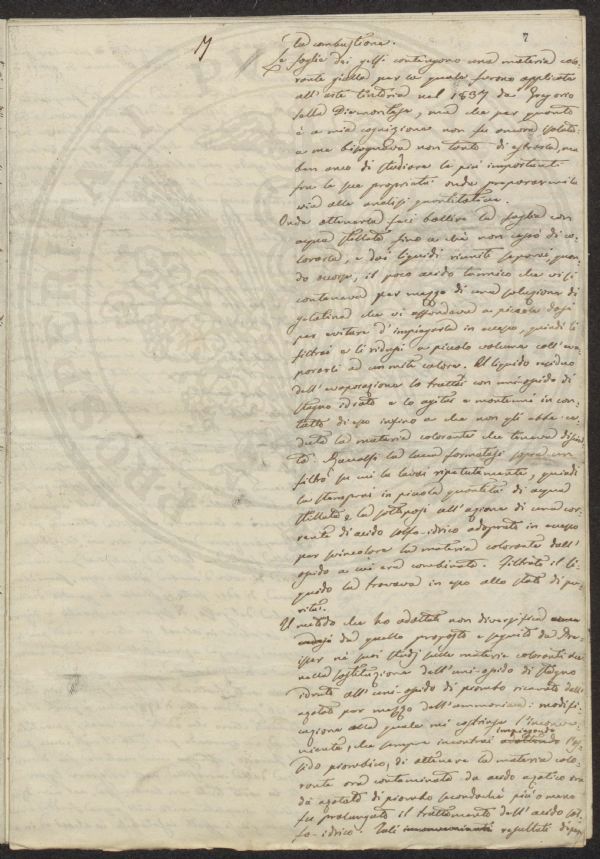 7
7
la combustione.
Le foglie dei gelsi contengono una materia colo-
rante gialla per la quale furono applicate
all'arte tintoria nel 1837 da Gregorio
della Dismontasa, ma che per quanto
è a mia cognizione non fu ancora isolata:
a me bisognava non tanto di estrarla, ma
ben anco di studiare le più importanti
fra le sue proprietà onde prepararmi la
via alle analisi quantitative.
Onde ottenerla feci bollire la foglia con
acqua stillata fino a che non cessò di co-
lorarla, e dai liquidi riuniti separai, quan-
do occorse, il poco acido tannico che vi si
conteneva per mezzo di una soluzione di
gelatina che vi affondava a piccole dosi
per evitare d'impiegarla in eccesso, quindi li
filtrai e li ridussi a piccolo volume coll'eva-
porarli ad un mite calore. Il liquido residuo
dell'evaporazione lo trattai con uni-ossido di
stagno idrato e lo agitai e mantenni in con-
tatto di esso infino a che non gli ebbe ce-
duta la materia colorante che teneva disciol-
ta. Raccolsi la lacca formatasi sopra un
filtro su cui la lavai ripetutamente, quindi
la stemprai in piccola quantità di acqua
stillata e la sottoposi all'azione di una cor-
rente di acido solfo-idrico adoprato in eccesso
per svincolare la materia colorante dall'
ossido a cui era combinata. Filtrato il li-
quido la trovava in esso allo stato di pu-
rità.
Il metodo che ho adottato non diversifica
da quello proposto e seguito da Prei-
sser ne' suoi studj sulle materie coloranti che
nella sostituzione dell'uni-ossido di stagno
idrato all'uni-ossido di piombo ricavato dall'
azotato per mezzo dell'ammoniaca: modifi-
cazione alla quale mi costrinse l'inconve-
niente, che sempre incontrai impiegando l'os-
sido piombico, di ottenere la materia colo-
rante ora contaminata da acido azotico ora
da azotato di piombo secondochè più o meno
fu prolungato il trattamento dell'acido sol-
fo-idrico. Tali resultati